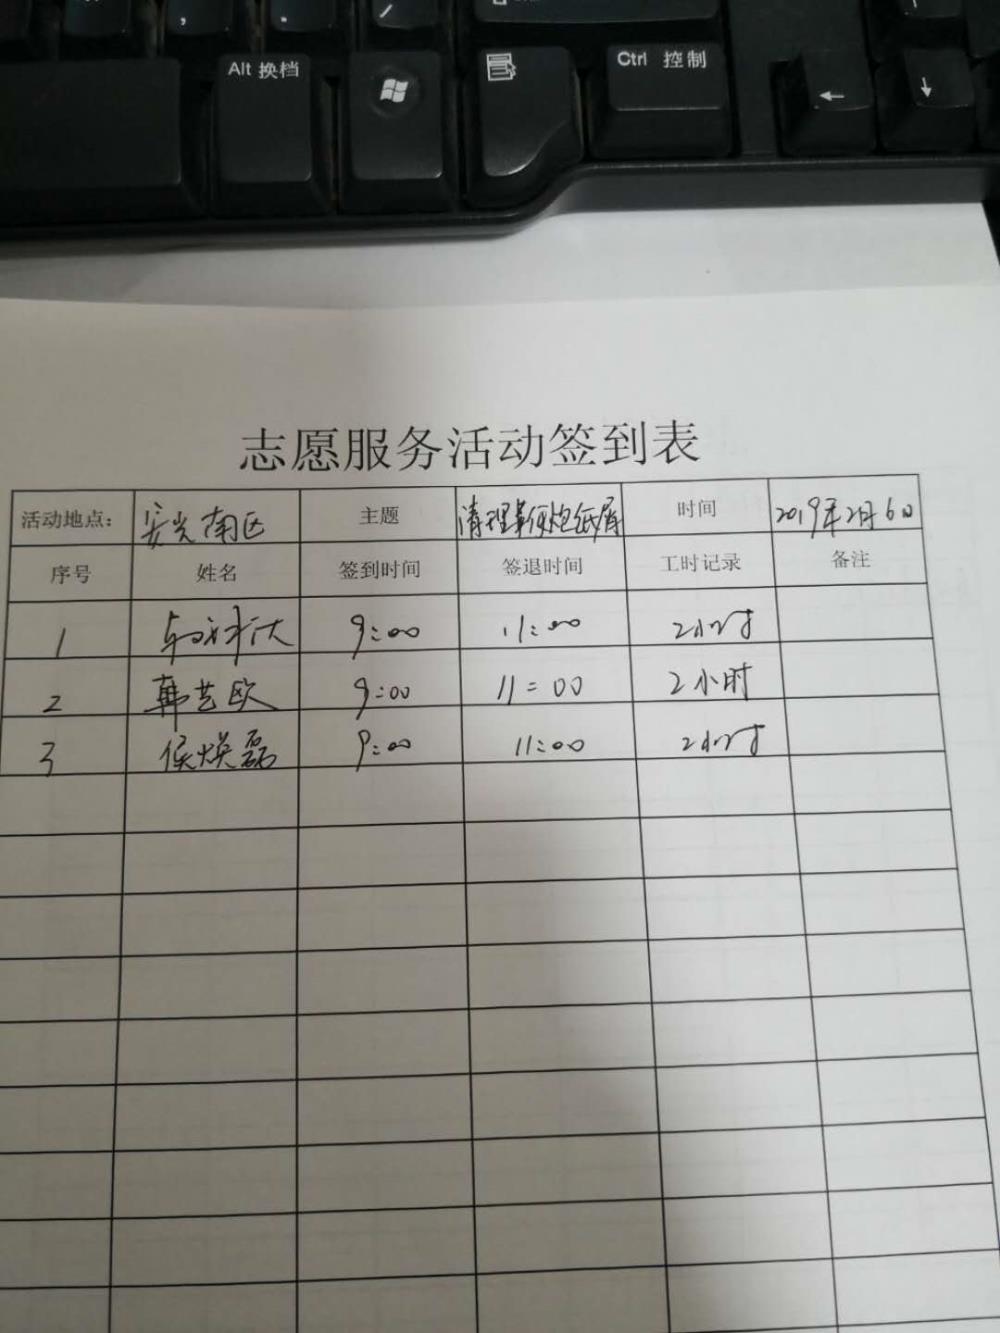 Alt 换档
Ctrl 控制
志愿服务活动签到表
活动地点: 安光南区 主题 清理鞭炮纸屑 时间 2019年2月6日
序号 姓名 签到时间 签退时间 工时记录 备注
1 9:00 11:00 2小时
2 韩艺欧 9:00 11:00 2小时
3 侯焕磊 9:00 11:00 2小时